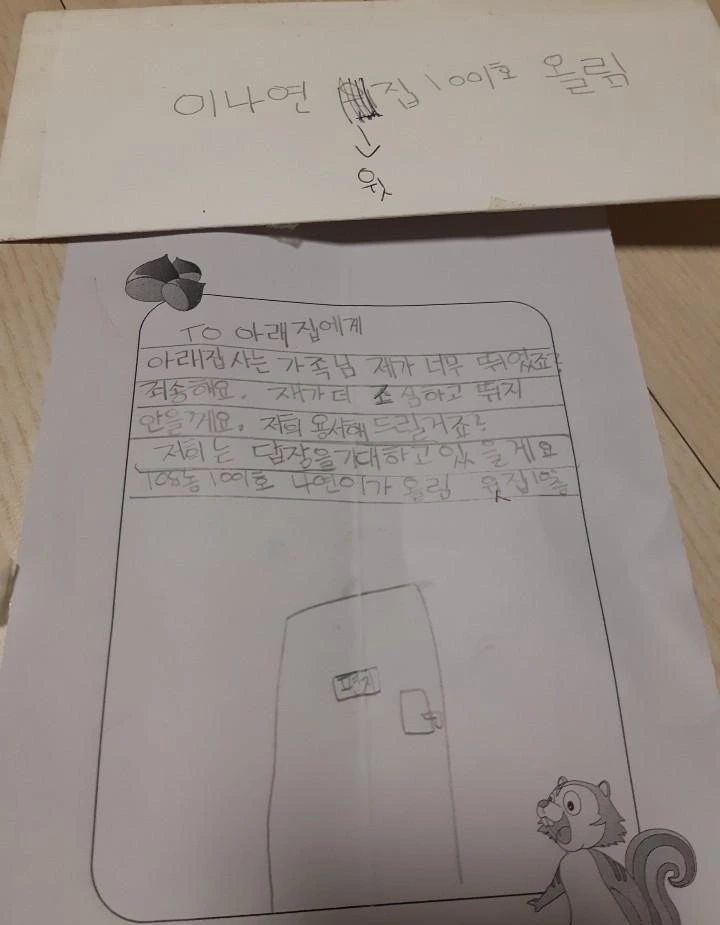 이나연 집 1001호 올림
윗
TO 아래집에게
아래집 사는 가족님 제가 너무 뛰었죠?
죄송해요. 재가 더 소심하고 뛰지
안을게요. 저희 용서해 드릴거죠?
저희는 답장을 기대하고 있을게요
108동 1001호 나연이가 올림 윗집 10층
편지